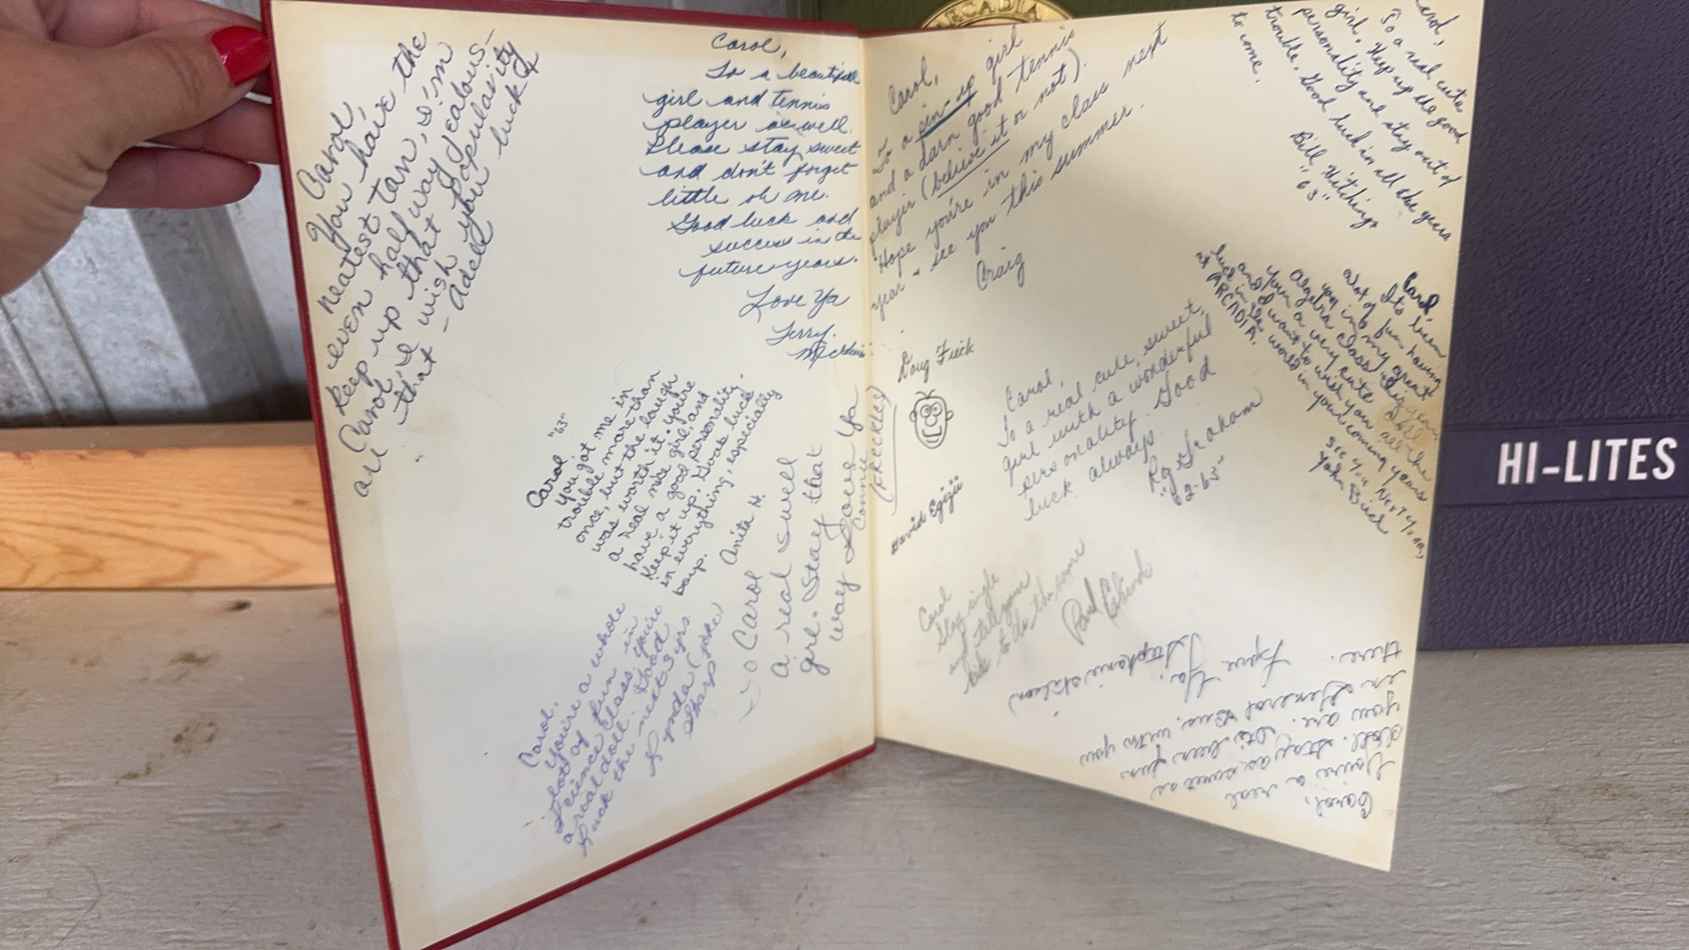 Carol,
You have the
neatest tan, I'm
even half way jealous-
keep up that popularity
Carol, I wish you luck
all that - Adell
Carol,
To a beautiful
girl and tennis
player as well.
Please stay sweet
and don't forget
little ol me.
Good luck and
success in the
future years.
Love Ya
Terry
"63"
Carol
You got me in
trouble more than
once, but the laugh
was worth it. you're
a real nice girl, and
have a good personality.
Keep it up. Good luck
in everything, especially
boys.
Anita H.
Carol
a real swell
girl. Stay that
way
Love Ya
Connie
(FRECKLEY)
Carol,
You're a whole
lot of fun in
Science Class, you're
a real doll.
Luck the next 3 yrs
Lynda
Carol,
To a pin-up girl
and a darn good tennis
player (believe it or not).
Hope you're in my class next
year - see you this summer.
Craig
Carol,
To a real cute
girl. Keep up the good
personality and stay out of
trouble. Good luck in all the years
to come.
Bill Hitchings
"63"
Carol,
It's been
alot of fun having
you in my great
Algebra class this year.
Your a very cute doll
and I want to wish you all the
luck in the world in your coming years
at ARCADIA.
See you Next Year,
John Buck
Doug
David
Carol,
To a real cute, sweet,
girl with a wonderful
personality. Good
luck always.
Ray Graham
"62-63"
Carol
Stay single
and tell your
to do the same
Paul
Carol,
You're a real
doll. Stay as sweet as
you are. It's been fun
in General Bus. with you
there.
Luv Ya,
Stephanie
ARCADIA
HI-LITES